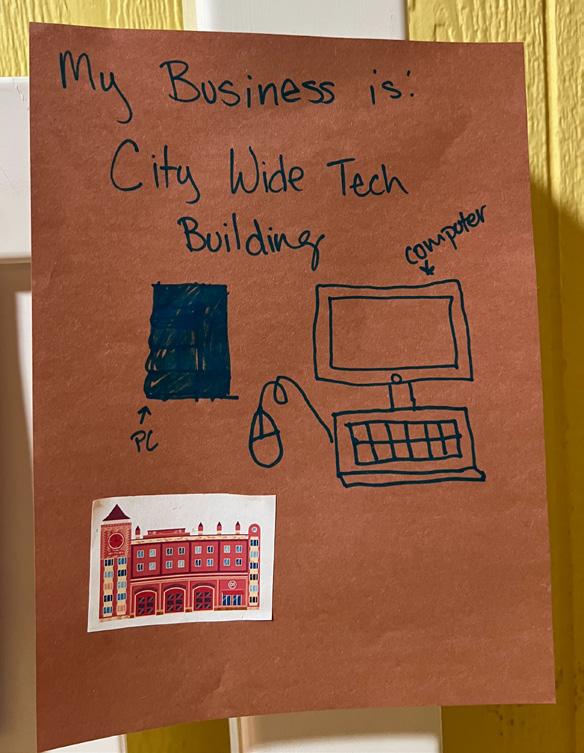 My Business is:
City Wide Tech
Building
computer
PC